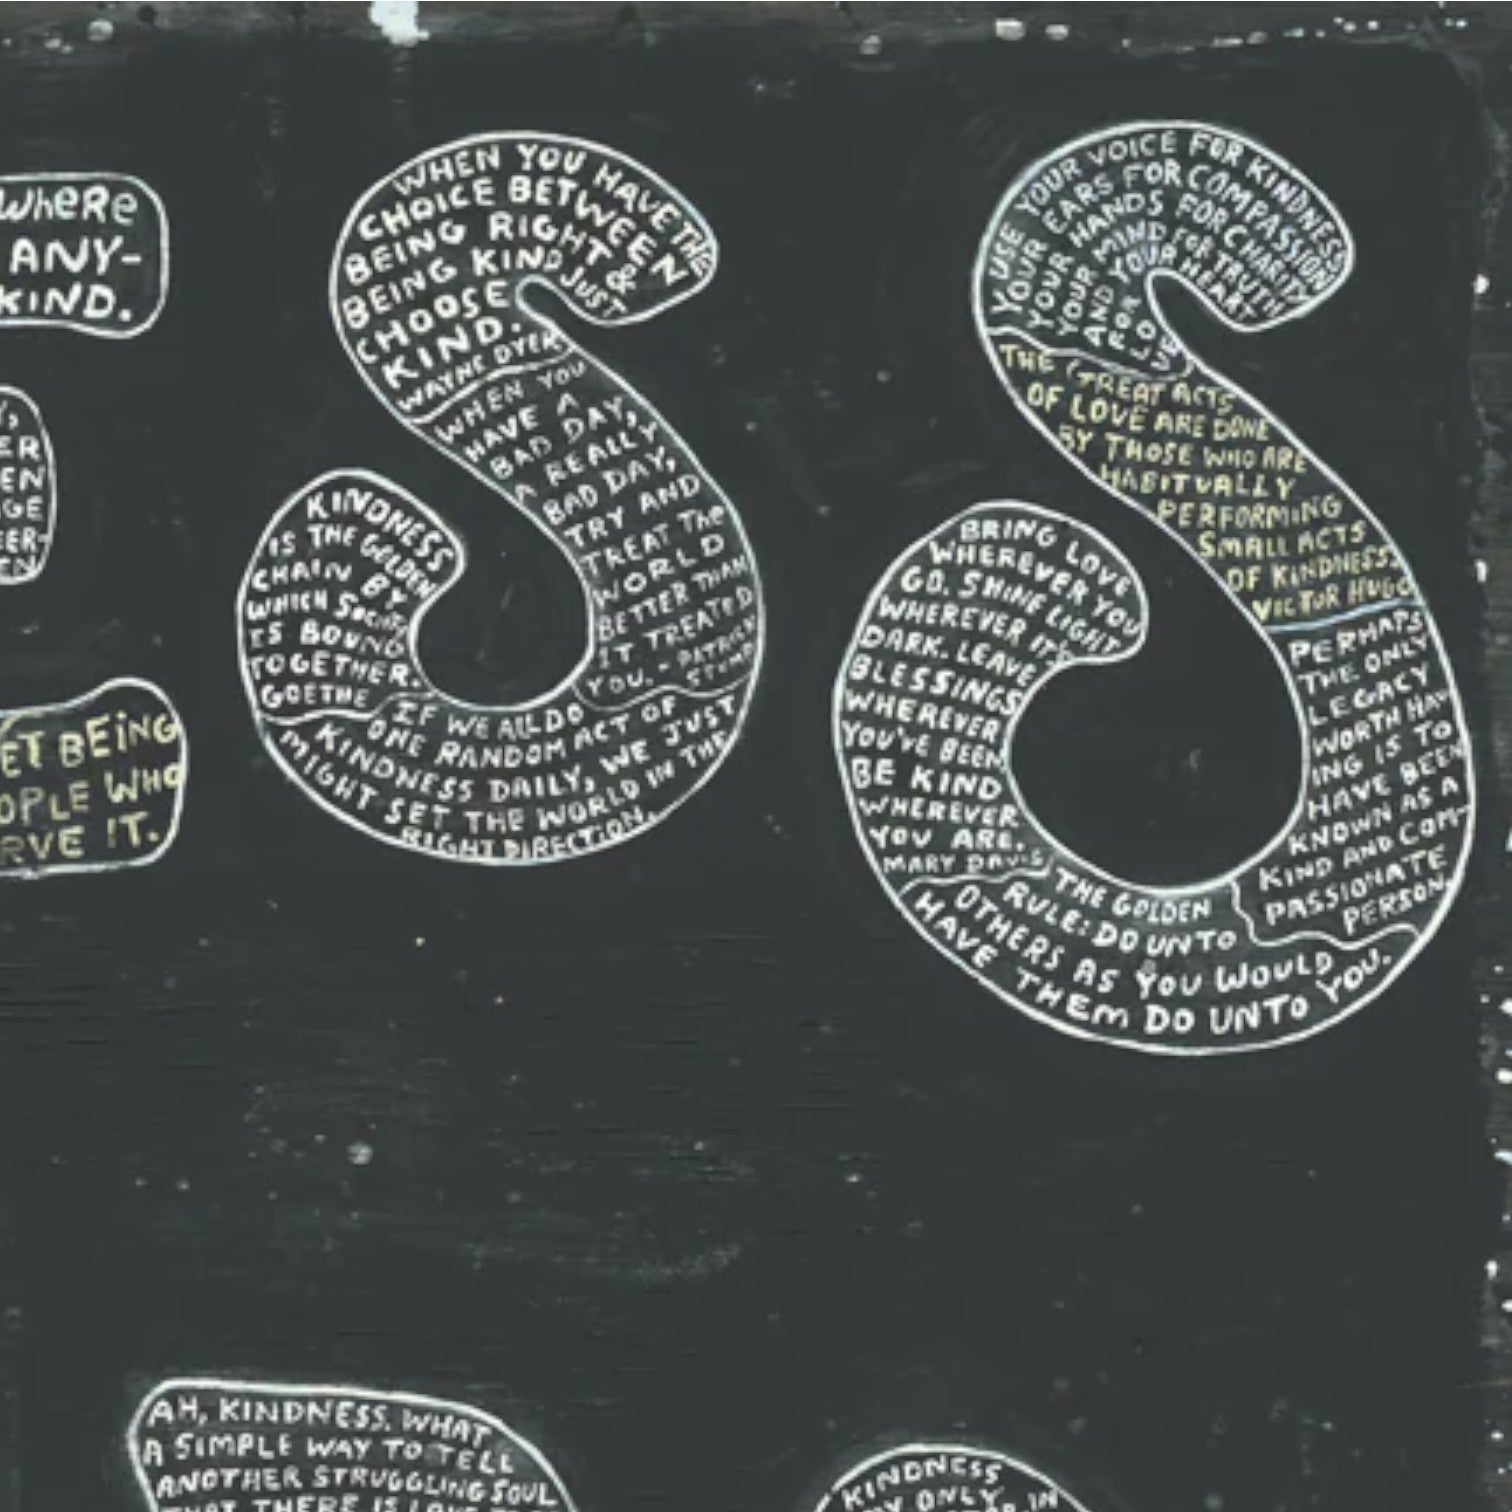 WheRe
ANY-
KIND.
ER
EN
GE
EER
EN
ET BEING
OPLE WHO
RVE IT.
WHEN YOU HAVE THE
CHOICE BETWEEN
BEING RIGHT &
BEING KIND JUST
CHOOSE
KIND.
WAYNE DYER
WHEN YOU
HAVE A
BAD DAY,
A REALLY
BAD DAY,
TRY AND
TREAT The
WORLD
BETTER THAN
IT TREATED
YOU. - PATRICK
STUMP
KINDNESS
IS THE GOLDEN
CHAIN BY
WHICH SOCIETY
IS BOUND
TOGETHER.
GOETHE
IF WE ALL DO
ONE RANDOM ACT OF
KINDNESS DAILY, WE JUST
MIGHT SET THE WORLD IN THE
RIGHT DIRECTION.
USE YOUR VOICE FOR KINDNESS
YOUR EARS FOR COMPASSION
YOUR HANDS FOR CHARITY
YOUR MIND FOR TRUTH
AND YOUR HEART
FOR
LOVE
THE GREAT ACTS
OF LOVE ARE DONE
BY THOSE WHO ARE
HABITUALLY
PERFORMING
SMALL ACTS
OF KINDNESS.
VICTOR HUGO
BRING LOVE
WHEREVER YOU
GO. SHINE LIGHT
WHEREVER IT'S
DARK. LEAVE
BLESSINGS
WHEREVER
YOU'VE BEEN
BE KIND
WHEREVER
YOU ARE.
MARY DAVIS
PERHAPS
THE ONLY
LEGACY
WORTH HAV
ING IS TO
HAVE BEEN
KNOWN AS A
KIND AND COM-
PASSIONATE
PERSON.
THE GOLDEN
RULE: DO UNTO
OTHERS AS YOU WOULD
HAVE THEM DO UNTO YOU.
AH, KINDNESS. WHAT
A SIMPLE WAY TO TELL
ANOTHER STRUGGLING SOUL
THAT THERE IS LOVE
KINDNESS
MY ONLY
IN